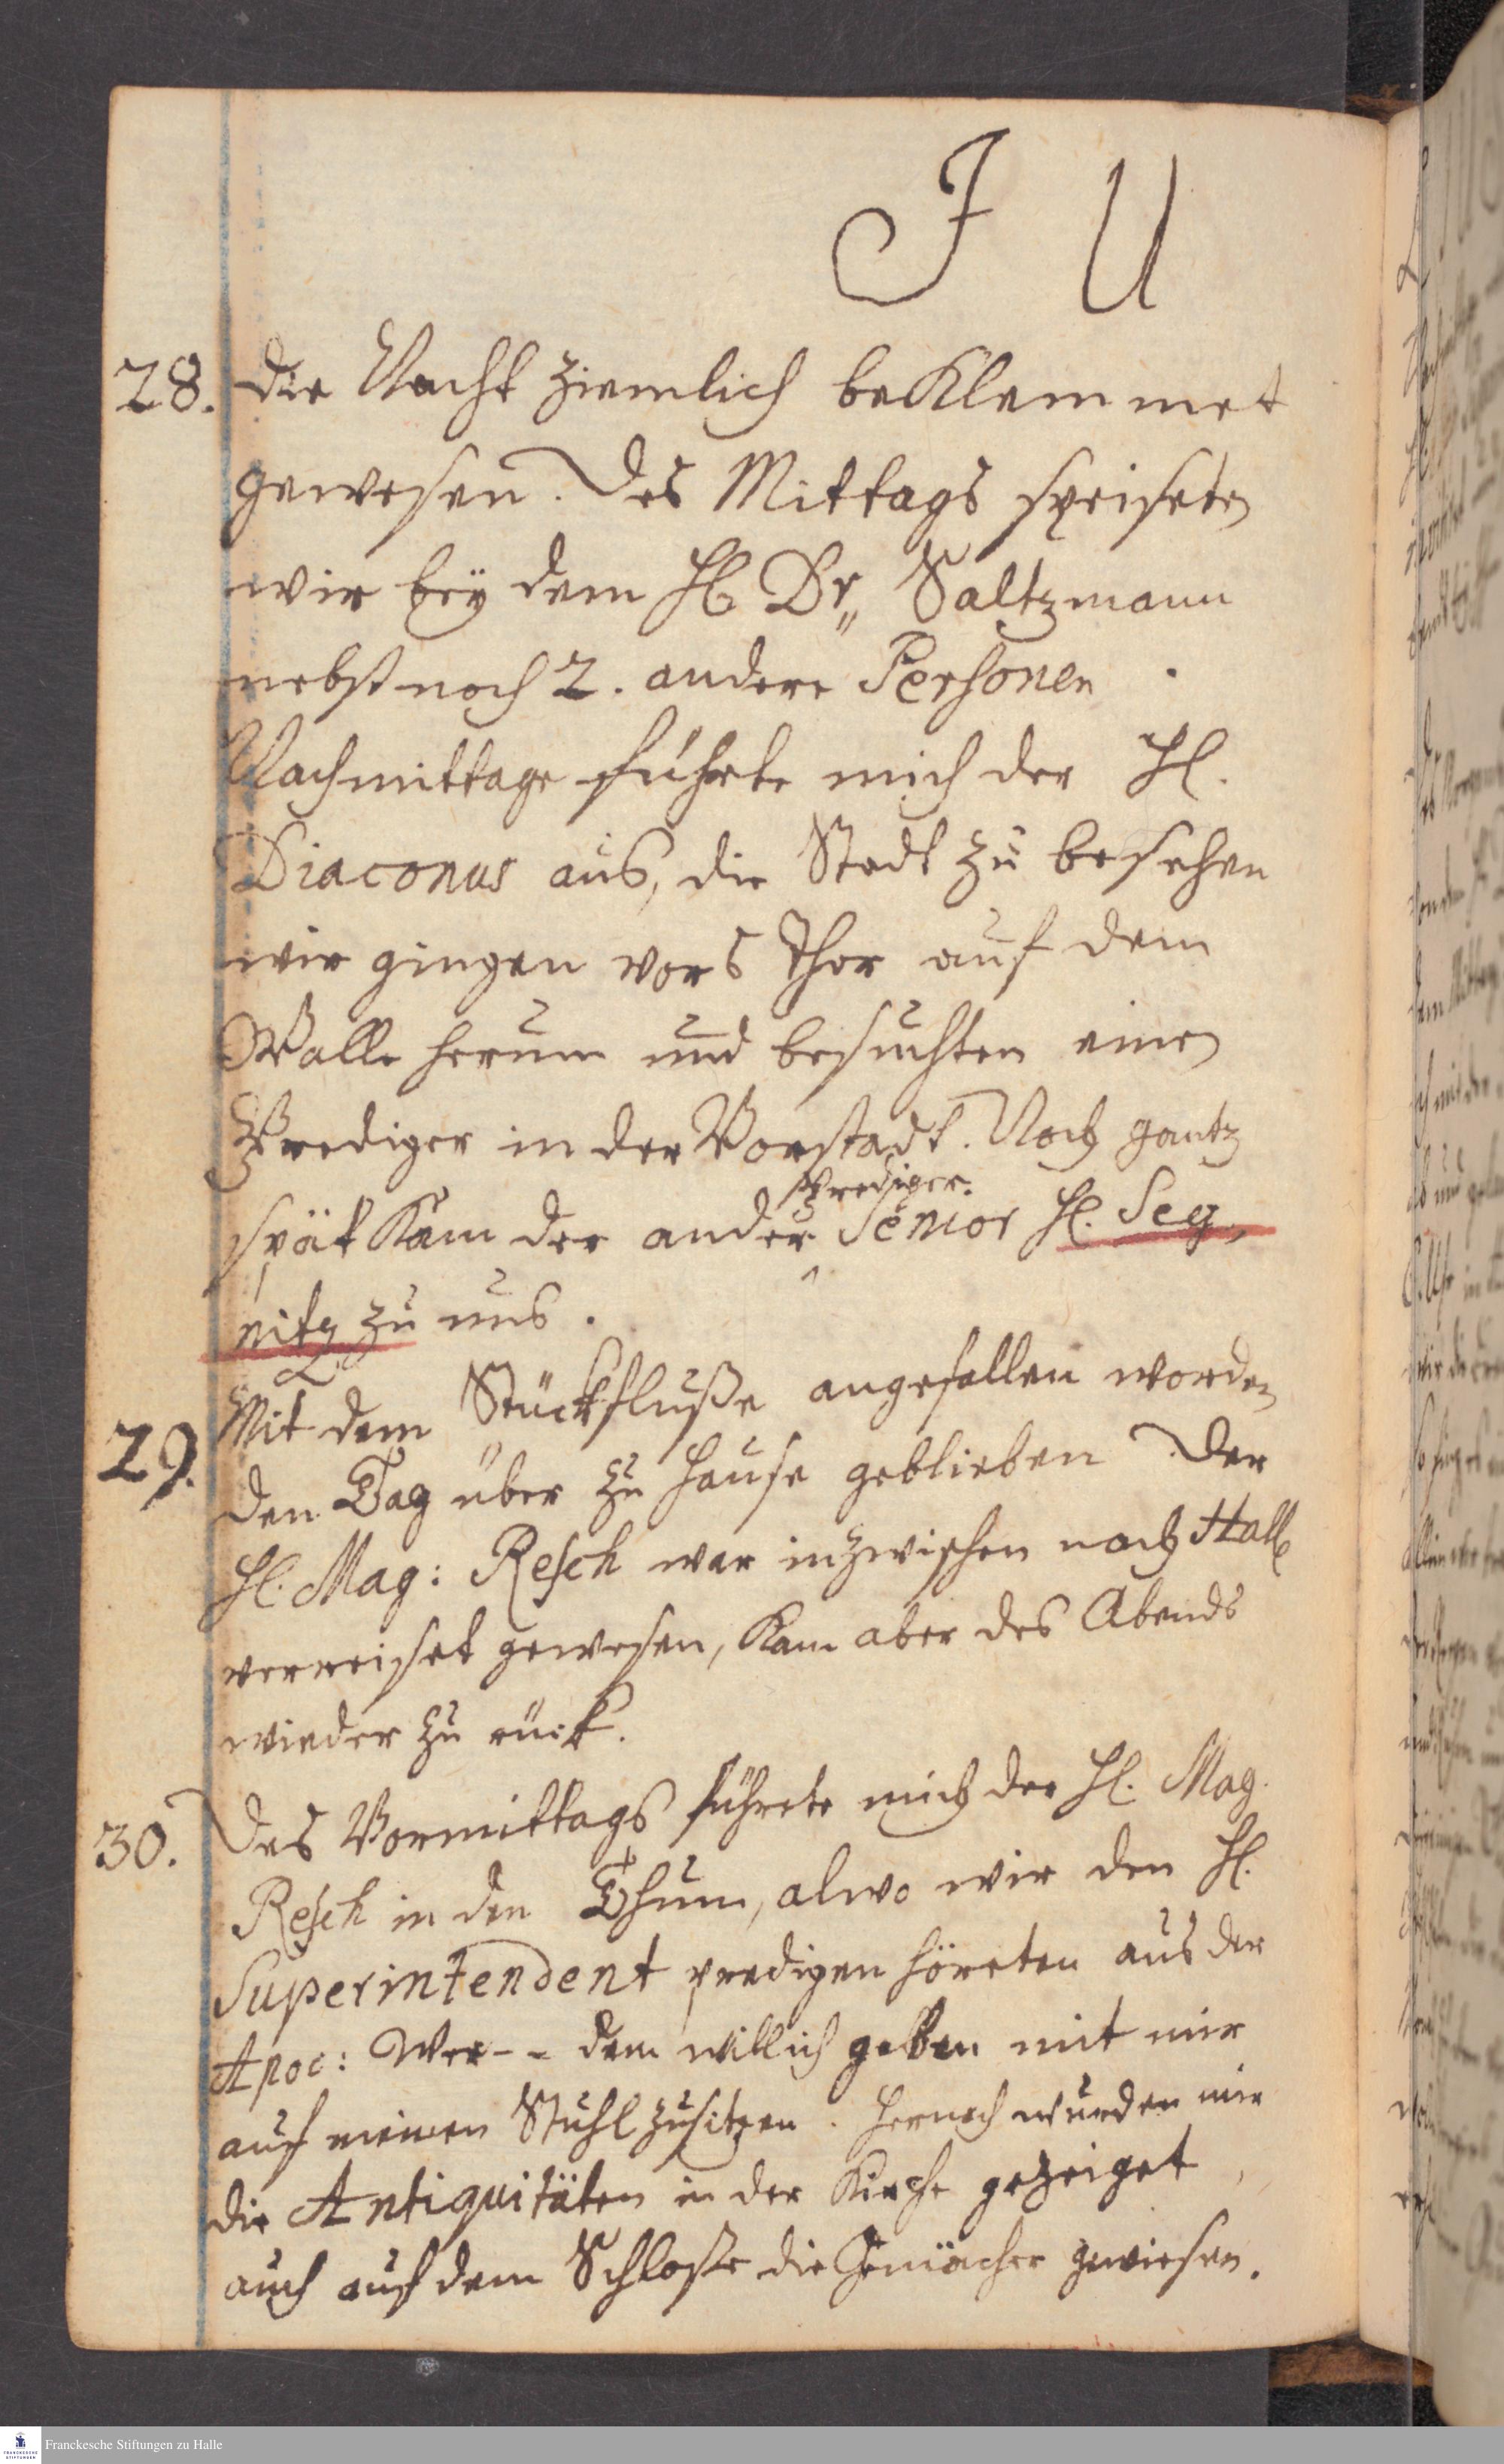 J U
28. die Nacht ziemlich beklemmet
gewesen. Des Mittags speiseten
wir bey dem H. Dr. Saltzmann
nebst noch 2. andere Personen.
Nachmittage führte mich der H.
Diaconus aus, die Stadt zu besehen
wir gingen vors Thor auf dem
Walle herum und besuchten einen
Prediger in der Vorstadt. Noch gantz
Prediger.
spät kam der ander Senior H. Seg,
nitz zu uns.
29. Mit dem Stückfluße angefallen worden
den Tag über zu Hause geblieben der
H. Mag: Resch war inzwischen nach Halle
verreiset gewesen, kam aber des Abends
wieder zu rück.
30. Des Vormittags führete mich der H. Mag.
Resch in den Thum, alwo wir den H.
Superintendent predigen höreten aus der
Apoc: Wer - - dem will ich geben mit mir
auf meinen Stuhl zusitzen. Hernach wurden mir
die Antiquitäten in der Kirche gezeiget,
auch auf dem Schloße die Gemächer gewiesen.
Franckesche Stiftungen zu Halle